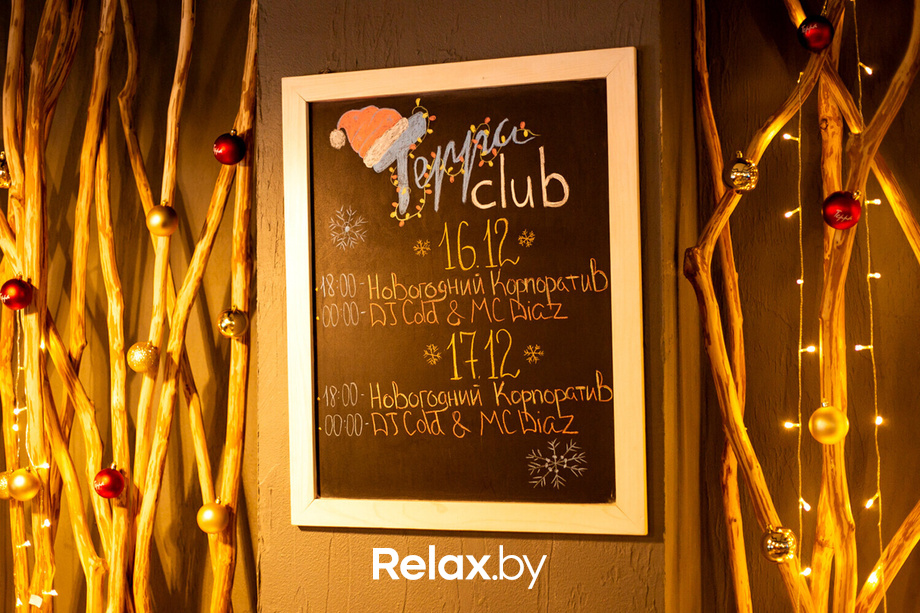 Терра
club
16.12
18:00 - Новогодний Корпоратив
00:00 - DJ Cold & MC Diaz
17.12
18:00 - Новогодний Корпоратив
00:00 - DJ Cold & MC Diaz
Relax.by